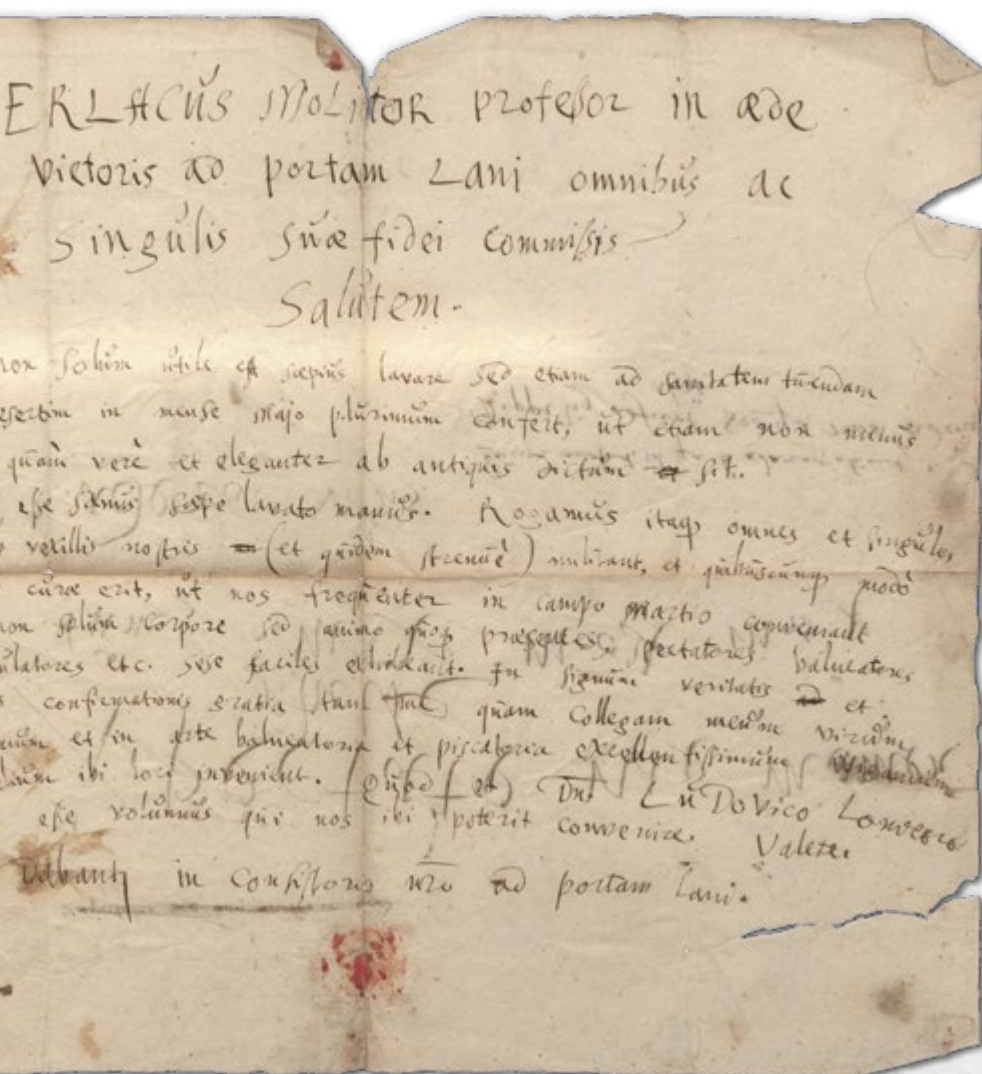 ERLACUS MOLITOR profeßor in æde
Victoris ad portam Lani omnibus ac
Singulis suæ fidei Commißis
Salutem.
non Solum utile est sæpius lavare sed etiam ad sanitatem tuendam
esertim in mense Majo plurimum Confert, ut etiam non minus
quàm verè et eleganter ab antiquis dictum sit.
eße sanus sæpe lavato manus. Rogamus itaq omnes et singulos
vexillis nostris (et quidem strenuè) militant, et quibuscunq modò
curæ erit, ut nos frequenter in campo Martio conveniant
non solum Corpore sed animo quoq præsentes spectatores balneatores
ulatores etc. sese faciles exhibeant. In signum veritatis et
confirmationis quam Collegam meum virum
et in arte balneatoria et piscatoria excellentißimum
ibi loci invenient. et Dn. LUDOVICO
eße volumus qui nos ibi poterit convenire. Valete.
Dabant in Consistorio nro ad portam Lani.